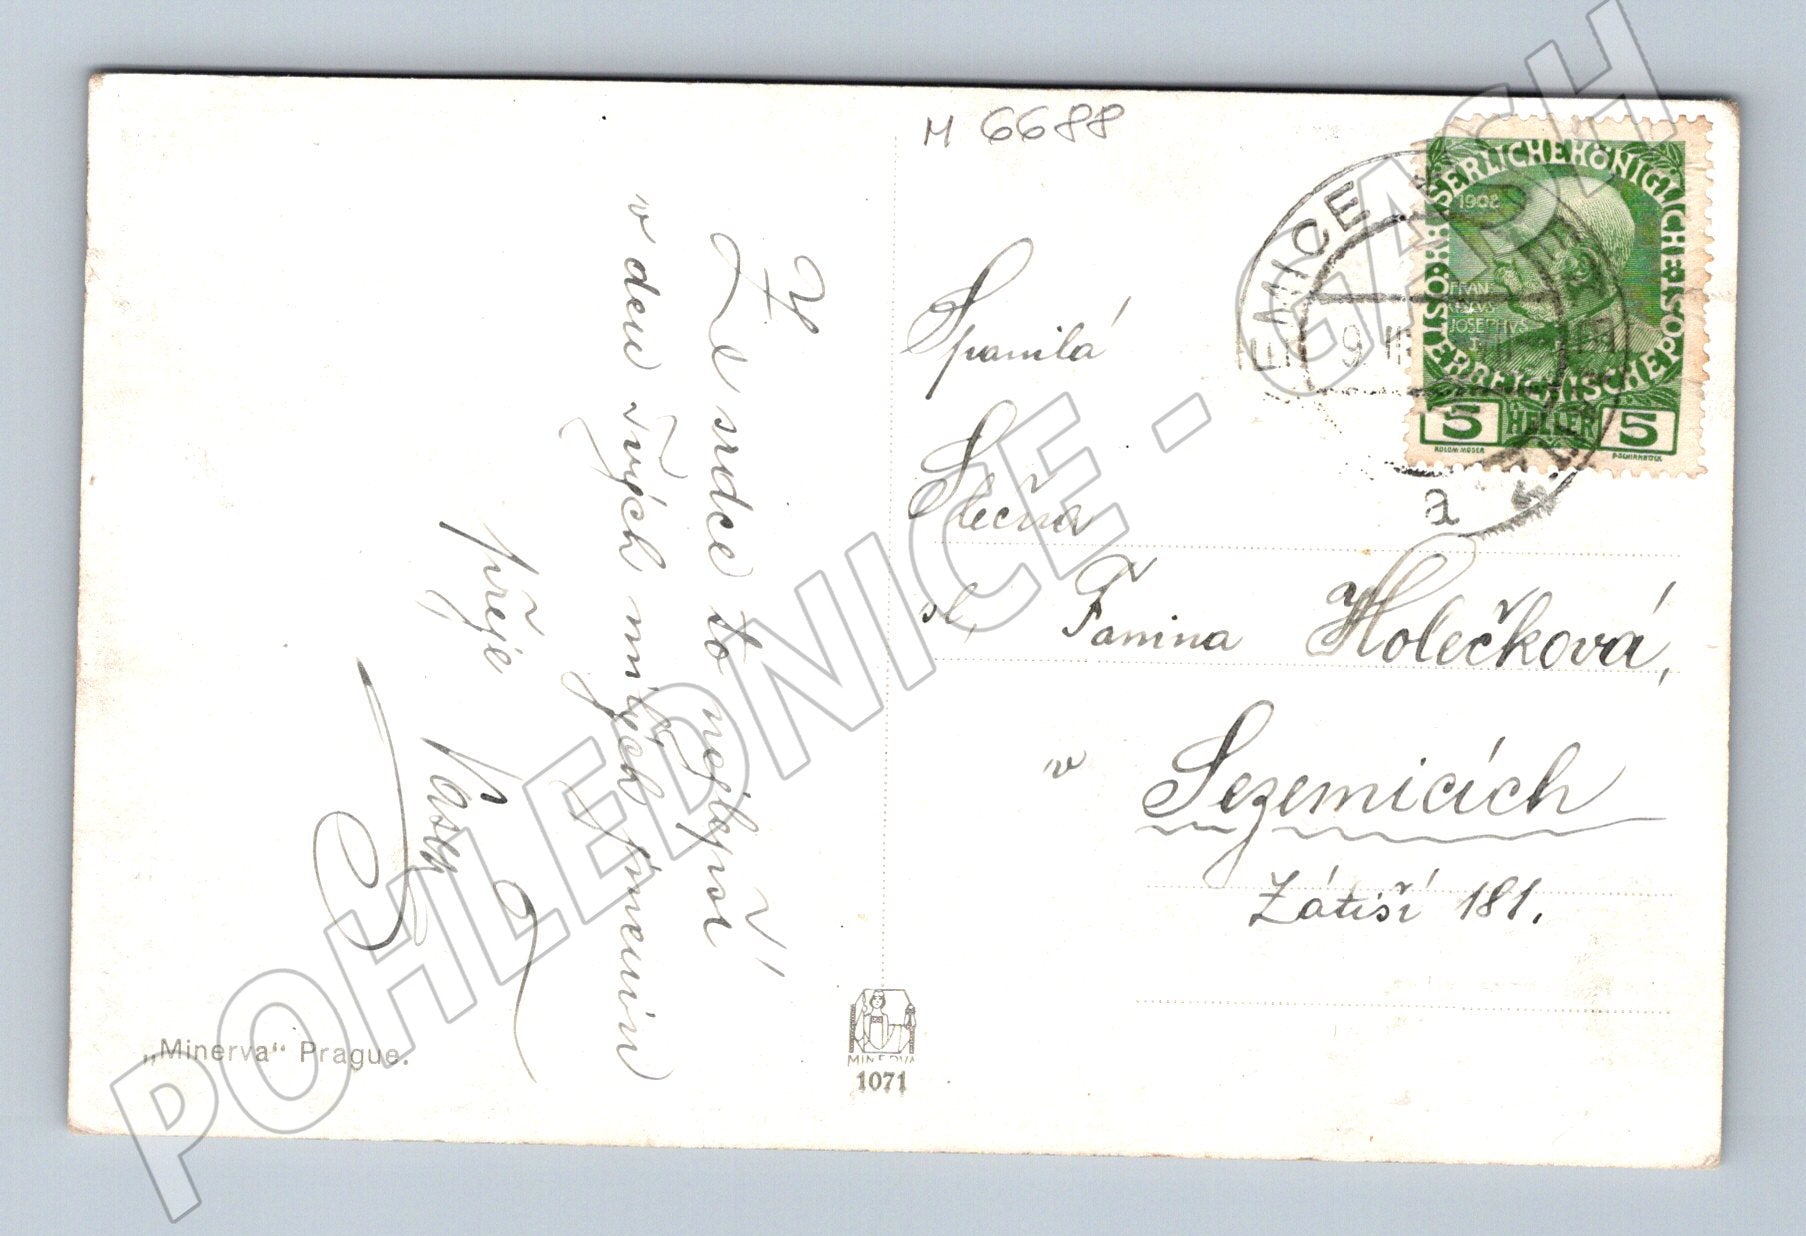 M 6688
Ze srdce to nejlepší
v den Tvých milých jmenin
přeje
Spanilá
Slečna
sl. Fanina Holečková,
v Sezemicích
Zátiší 181.
KAISERLICHE KÖNIGLICHE
ÖSTERREICHISCHE POST
1908
FRAN
CISCVS
JOSEPHVS
I
5 HELLER 5
KOLOM. MOSER
F. SCHIRNBÖCK
9 III
a
"Minerva" Prague.
MINERVA
1071
POHLEDNICE - GASH